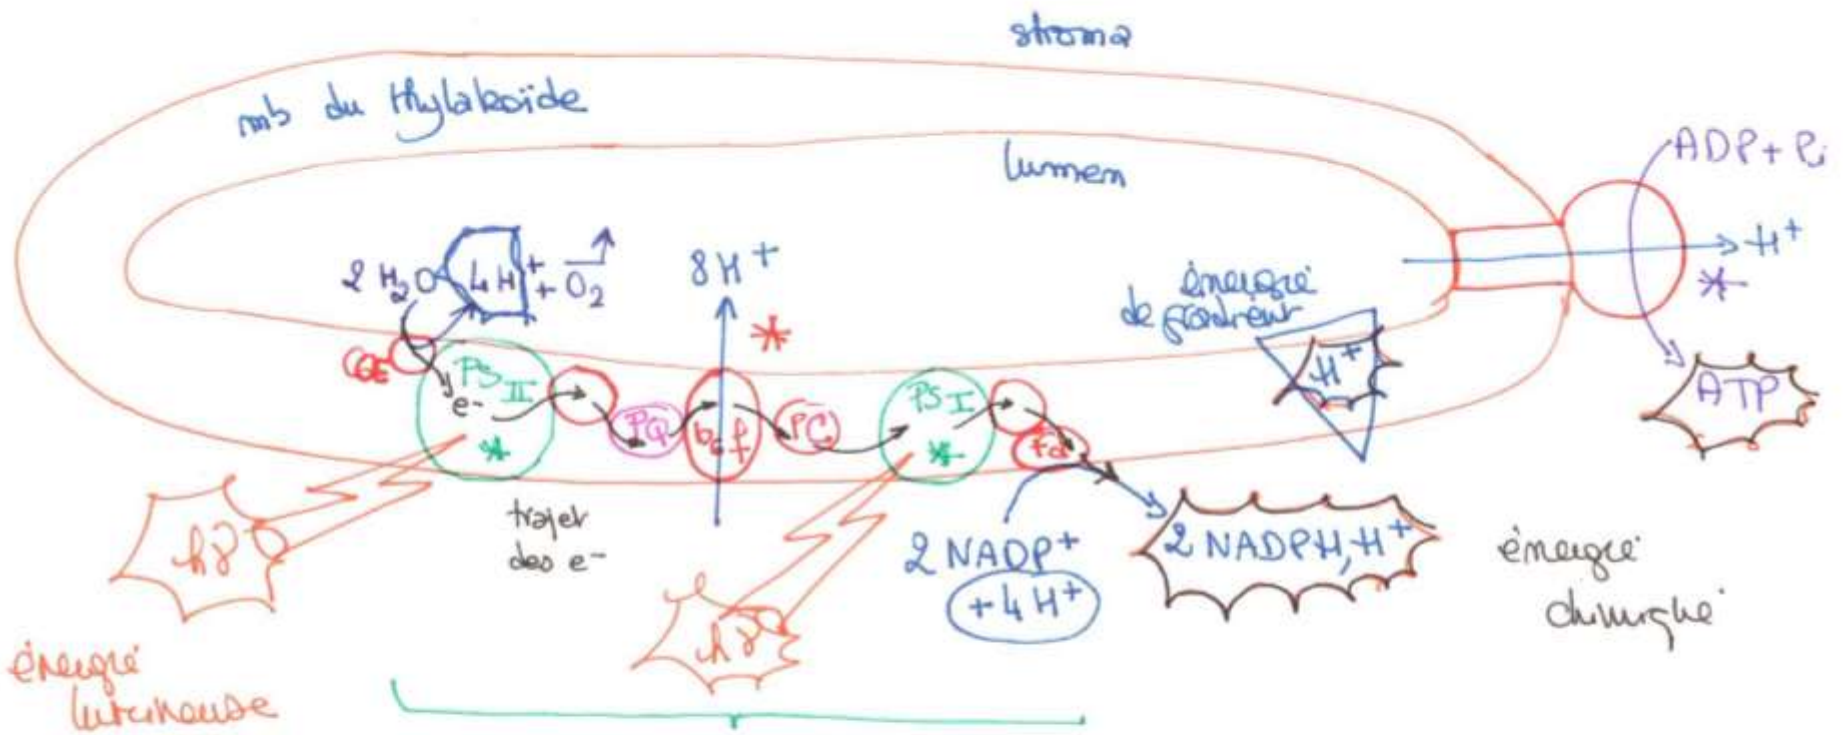 stroma
mb du thylakoïde
lumen
ADP + Pi
H+
*
ATP
2 H2O
4H+ + O2
8H+
*
énergie
de gradient
H+
PSII
e-
*
PQ
b6f
PC
PSI
*
Fd
hγ
trajet
des e-
hγ
2 NADP+
+ 4H+
2 NADPH, H+
énergie
chimique
énergie
lumineuse